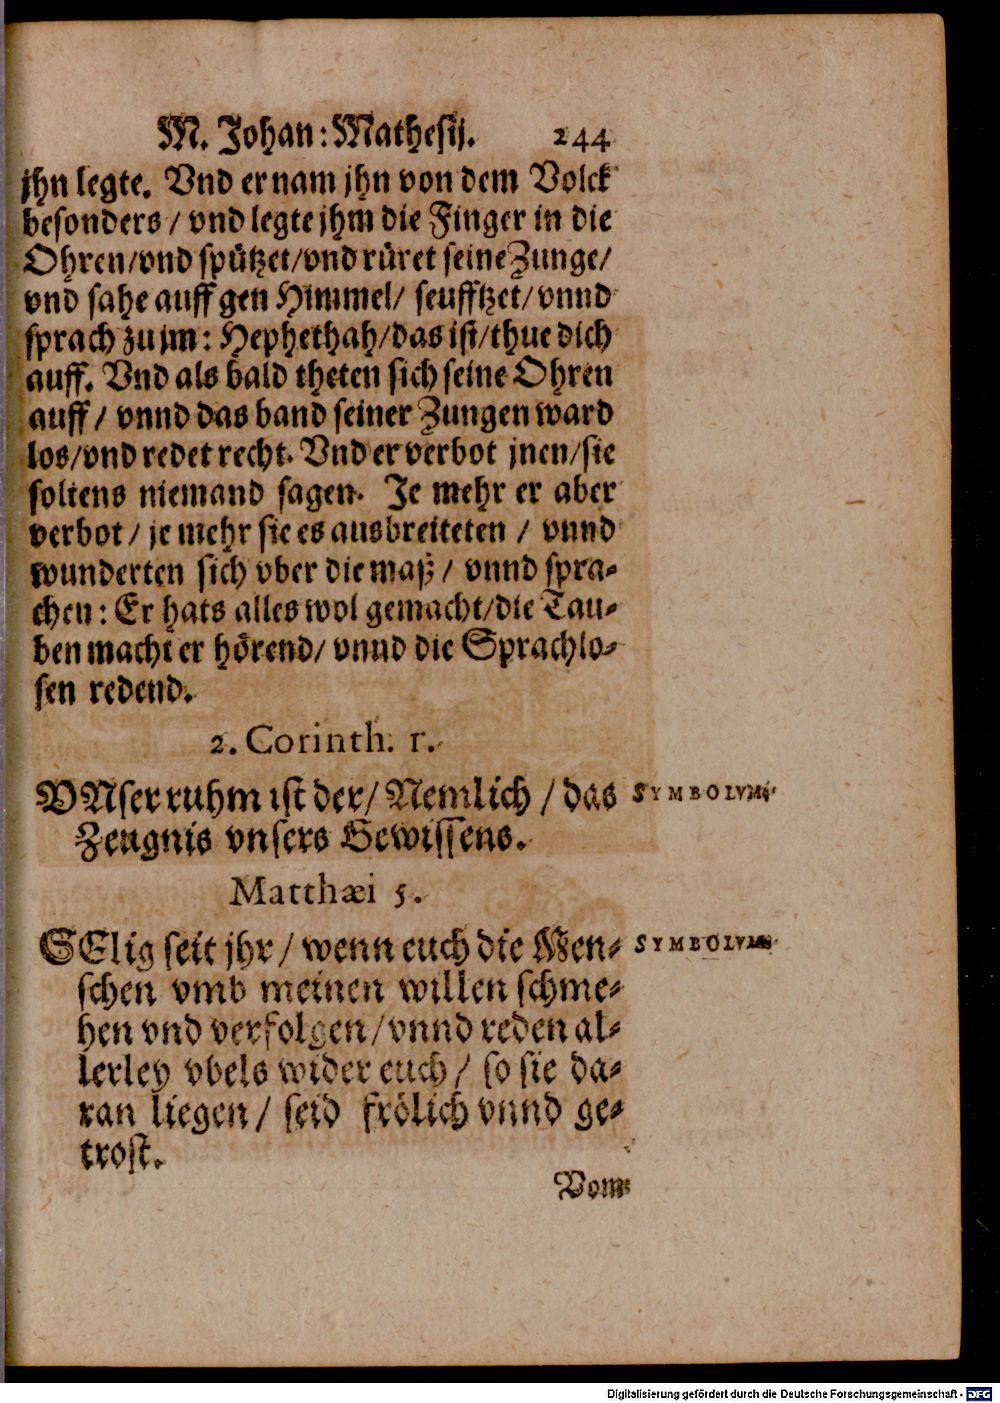 M. Johan: Mathesij. 244
jhn legte. Vnd er nam jhn von dem Volck
besonders / vnd legte jhm die Finger in die
Ohren/vnd spützet/vnd rüret seine Zunge/
vnd sahe auff gen Himmel/ seufftzet/vnnd
sprach zu jm: Hephethah/das ist/thue dich
auff. Vnd als bald theten sich seine Ohren
auff / vnnd das band seiner Zungen ward
los/vnd redet recht. Vnd er verbot jnen/sie
soltens niemand sagen. Je mehr er aber
verbot / je mehr sie es ausbreiteten / vnnd
wunderten sich vber die maß / vnnd spra-
chen: Er hats alles wol gemacht/die Tau-
ben macht er hörend/ vnnd die Sprachlo-
sen redend.
2. Corinth. 1.
VNser ruhm ist der/ Nemlich / das SYMBOLVM.
Zeugnis vnsers Gewissens.
Matthæi 5.
SElig seit jhr / wenn euch die Men- SYMBOLVM
schen vmb meinen willen schme-
hen vnd verfolgen/vnnd reden al-
lerley vbels wider euch / so sie da-
ran liegen / seid frölich vnnd ge-
trost.
Vom
Digitalisierung gefördert durch die Deutsche Forschungsgemeinschaft - DFG